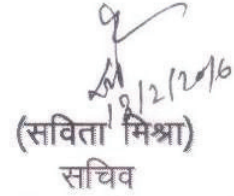 18/2/2016
(सविता मिश्रा)
सचिव